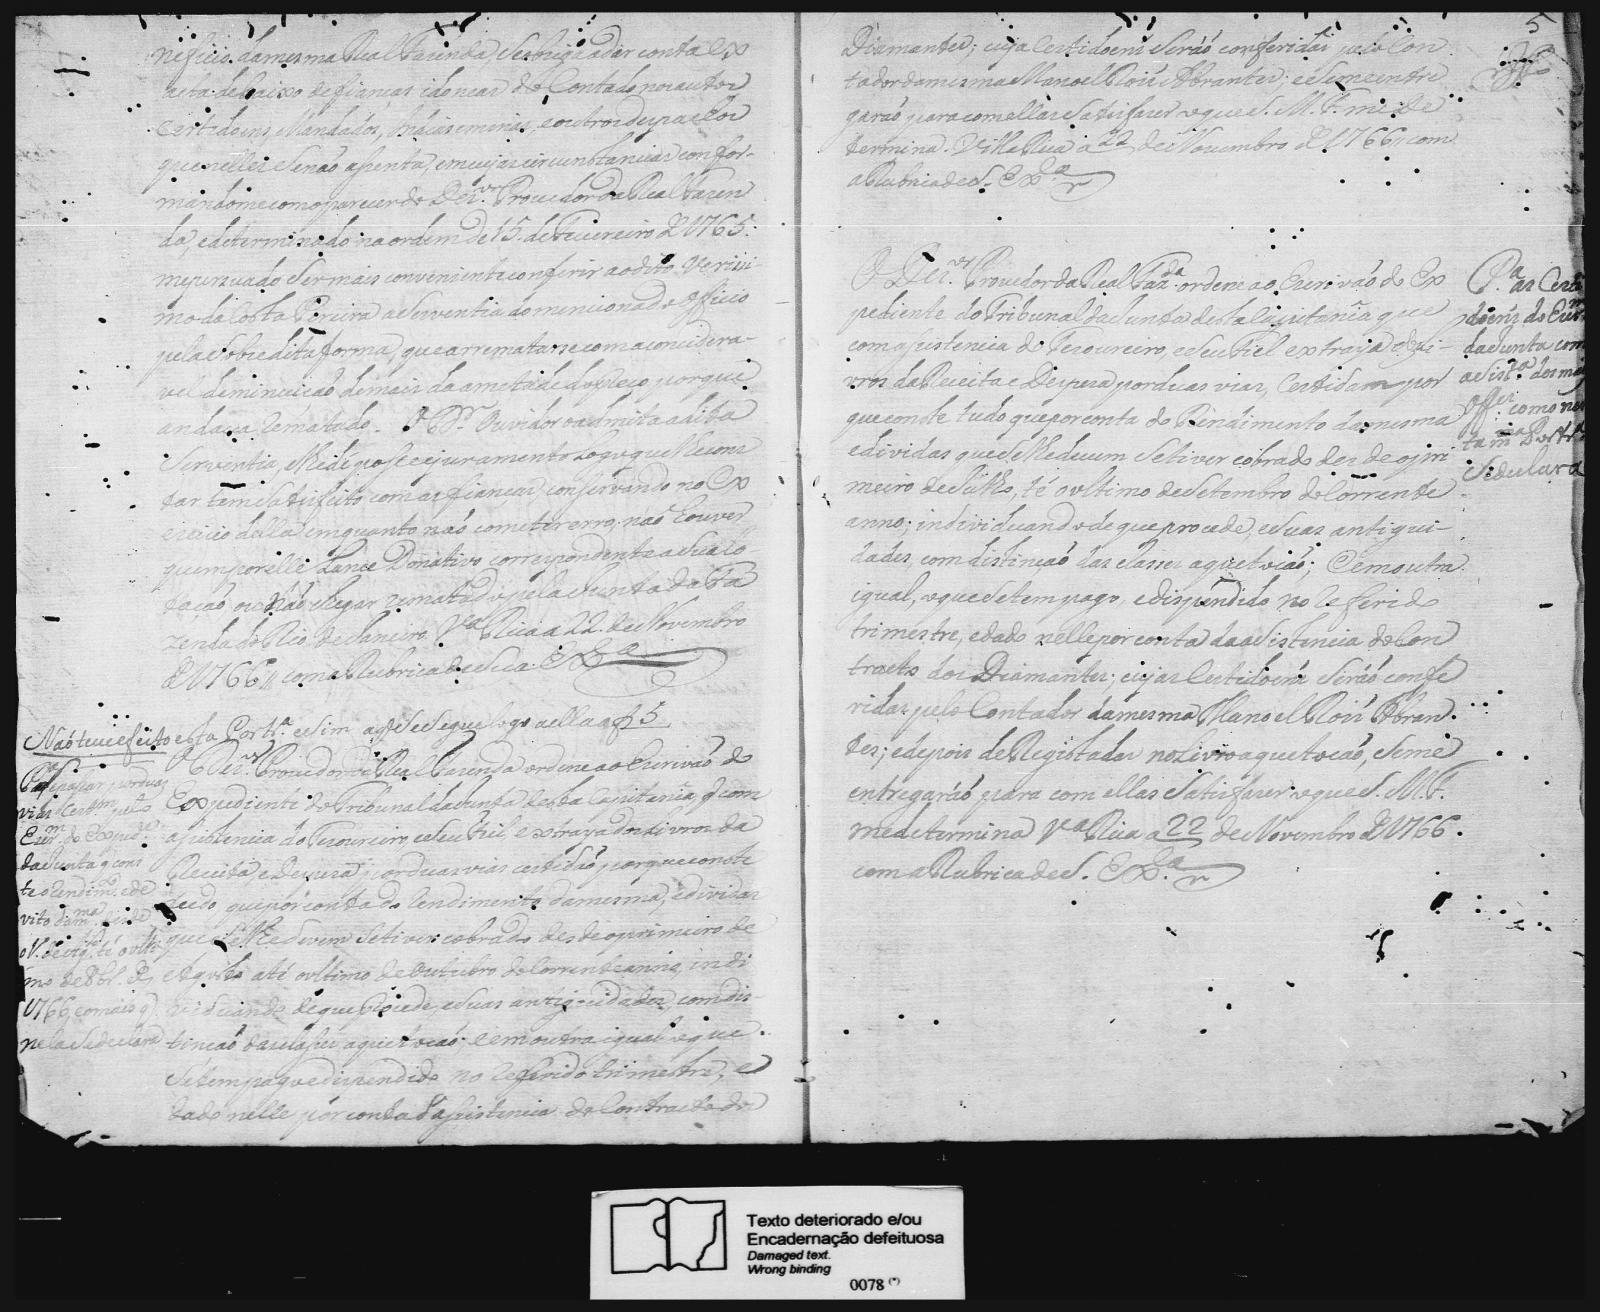 neficio da mesma Real Fazenda, se obrigue a dar conta ex
acta debaixo de fianças idoneas do Contado nos autos
Certidoens, Mandados, e outros
que nelles senão asenta, em cujas circunstancias confor-
mandome com o parecer do Dez.or Provedor da Real Fazen
da, e determinado na ordem de 15 de Fevereiro de 1765:
me persuado ser mais conveniente conferir ao dito Verisi
mo da Costa Pereira a serventia do mencionado officio
pela sobredita forma, que arrematarse com a considera-
vel deminuição de mais da ametade do preço porque
andava rematado. O D.r Ouvidor o admita a dita
serventia, e lhe dê posse e juramento logo que lhe cons
tar tem satisfeito com as fianças, conservando no Ex
ercicio della emquanto não cometer erro, não houver
quem por elle Lance Donativo correspondente a sua Lo
tação ou não chegar rematado pela Junta da Fa
zenda do Rio de Janeiro. V.a Rica a 22 de Novembro
de 1766 // com a Rubrica de Sua Ex.a
Não teve efeito esta Port.a e sim a q̃ se segue logo a ella a f 5
O Dez.or Provedor da Real Fazenda ordene ao Escrivão do
Expediente do Tribunal da Junta desta Capitania, q̃ com
asistencia do Tesoureiro, e seu Fiel extraya dos Livros da
Receita, e Despeza, por duas vias certidão, porque conste
tudo que por conta do rendimento da mesma, e dividas
que se lhe devem se tiver cobrado desde o primeiro de
Agosto até o ultimo de Outubro do Corrente anno, indi
viduando de que Procede, e suas antiguidades, com dis-
tinção das classes, a que tocão; e em outra igual o que
se tem pago e dispendido no referido trimestre, e
dado nelle por conta d'asistencia do Contracto dos
P.a se passar por duas
vias Cert.am pelo
Escr.m do Exped.e
da Junta q̃ cons
te o rendim.to, e de
vito da m.ma desde
o 1.º de Ag.to té o ult.
mo de 8br.º de
1766, e o mais q̃
nela se declara
5
Diamantes; cujas Certidoens serão conferidas pelo Con
tador da mesma Manoel Roiz Abrantes; e se me entre
garão para com ellas satisfazer o que S. M. F. me de
termina. Villa Rica a 22 de Novembro de 1766 // com
a Rubrica de S. Ex.a
O Dez.or Provedor da Real Faz.da ordene ao Escrivão do Ex
pediente do Tribunal da Junta desta Capitania que
com asistencia do Tesoureiro, e seu Fiel extraya dos Li-
vros da Receita e Despeza por duas vias, Certidam por
que conste tudo que por conta do Rendimento da mesma
e dividas que se lhe devem se tiver cobrado des de o pri
meiro de Julho, té o ultimo de Setembro do Corrente
anno; individuando de que procede, e suas antigui-
dades, com distinção das classes a que tocão; E em outra
igual, o que se tem pago, e dispendido no referido
trimestre, e dado nelle por conta da asistencia do Con
tracto dos Diamantes; cujas Certidoens serão confe
ridas pelo Contador da mesma Manoel Roiz Abran.
tes; e depois de Registadas no Livro a que tocão, se me
entregarão para com ellas satisfazer o que S. M. F.
me determina V.a Rica a 22 de Novembro de 1766.
com a Rubrica de S. Ex.a
P.a as Certi
doens do Escr.m
da Junta com
a asist.a dos mais
Off.es como nes
ta m.ma Port.a
se declara
Texto deteriorado e/ou
Encadernação defeituosa
Damaged text.
Wrong binding
0078 (*)